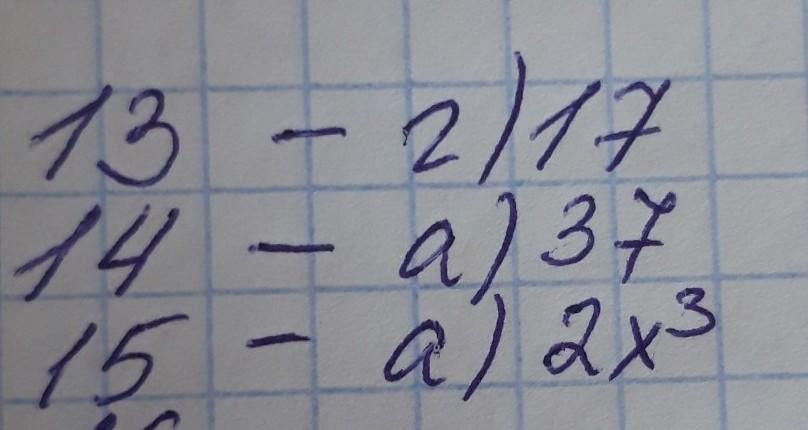 13 - г) 17
14 - а) 37
15 - а) 2x³